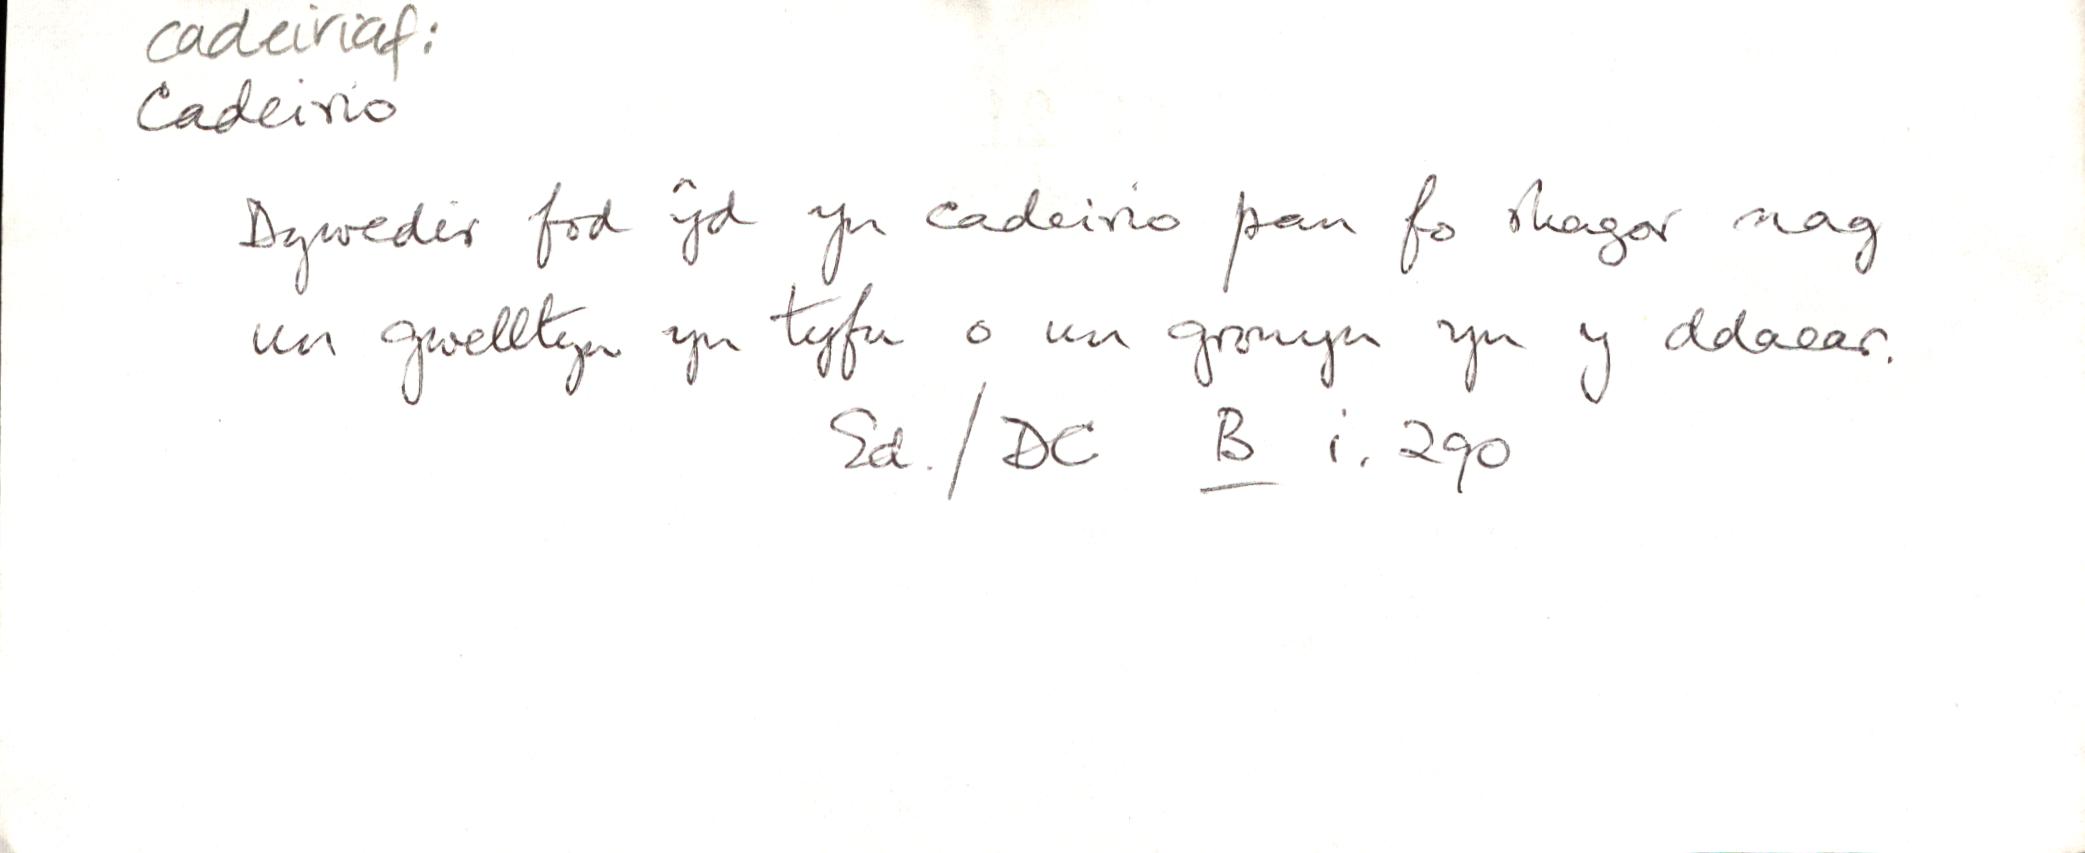 cadeiriaf:
Cadeirio
Dywedir fod ŷd yn cadeirio pan fo rhagor nag
un gwelltyn yn tyfu o un gronyn yn y ddaear.
Ed./DC B i. 290